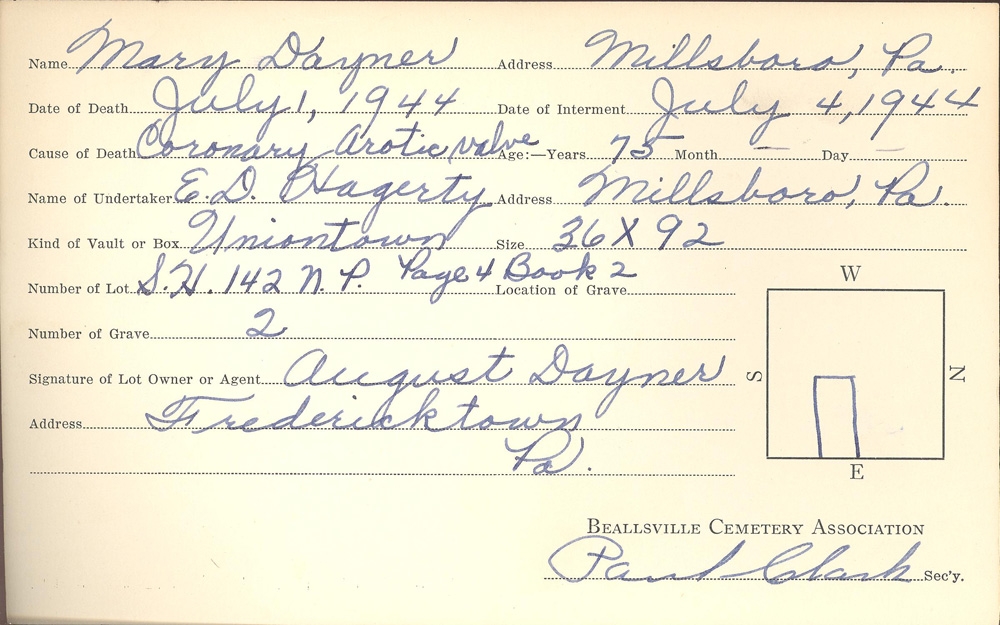 Name Mary Dayner Address Millsboro, Pa.
Date of Death July 1, 1944 Date of Interment July 4, 1944
Cause of Death Coronary Arotic valve Age:—Years 75 Month — Day —
Name of Undertaker E. D. Hagerty Address Millsboro, Pa.
Kind of Vault or Box Uniontown Size 36 X 92
Number of Lot S. H. 142 N. P. Page 4 Book 2 Location of Grave
Number of Grave 2
Signature of Lot Owner or Agent August Dayner
Address Fredericktown
Pa.
W
S
N
E
Beallsville Cemetery Association
Paul Clark Sec'y.